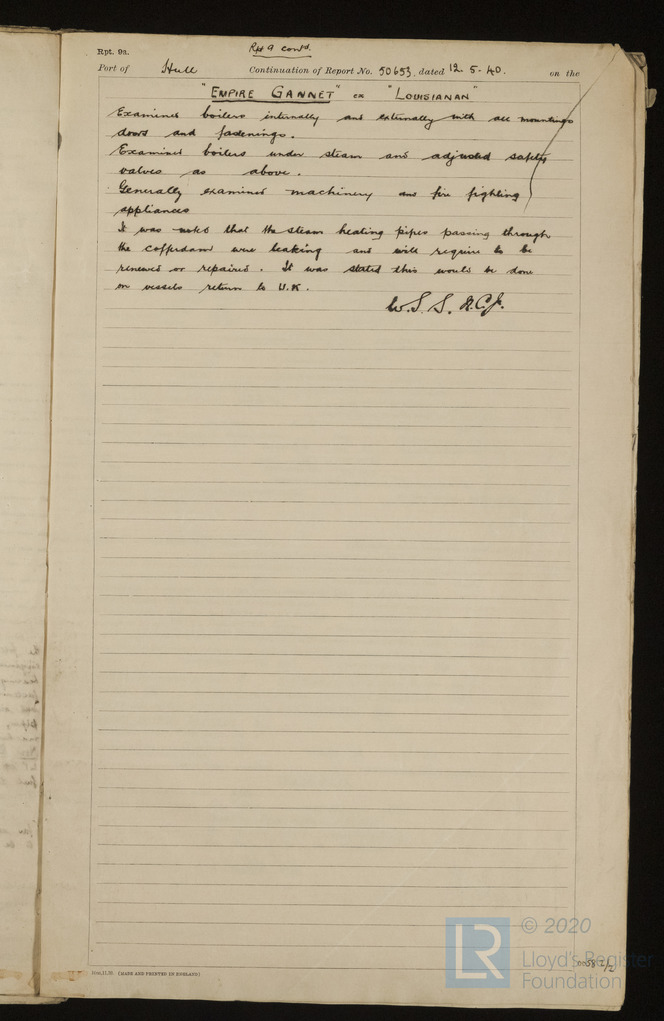 Rpt. 9a.
Rpt 9 contd.
Port of Hull Continuation of Report No. 50653. dated 12.5.40. on the
"EMPIRE GANNET" ex "LOUISIANAN"
Examined boilers internally and externally with all mountings
doors and fastenings.
Examined boilers under steam and adjusted safety
valves as above.
Generally examined machinery and fire fighting
appliances
It was noted that the steam heating pipes passing through
the cofferdam were leaking and will require to be
renewed or repaired. It was stated this would be done
on vessels return to U.K.
W.S.S.
(MADE AND PRINTED IN ENGLAND)
LR
© 2020
Lloyd's Register
Foundation